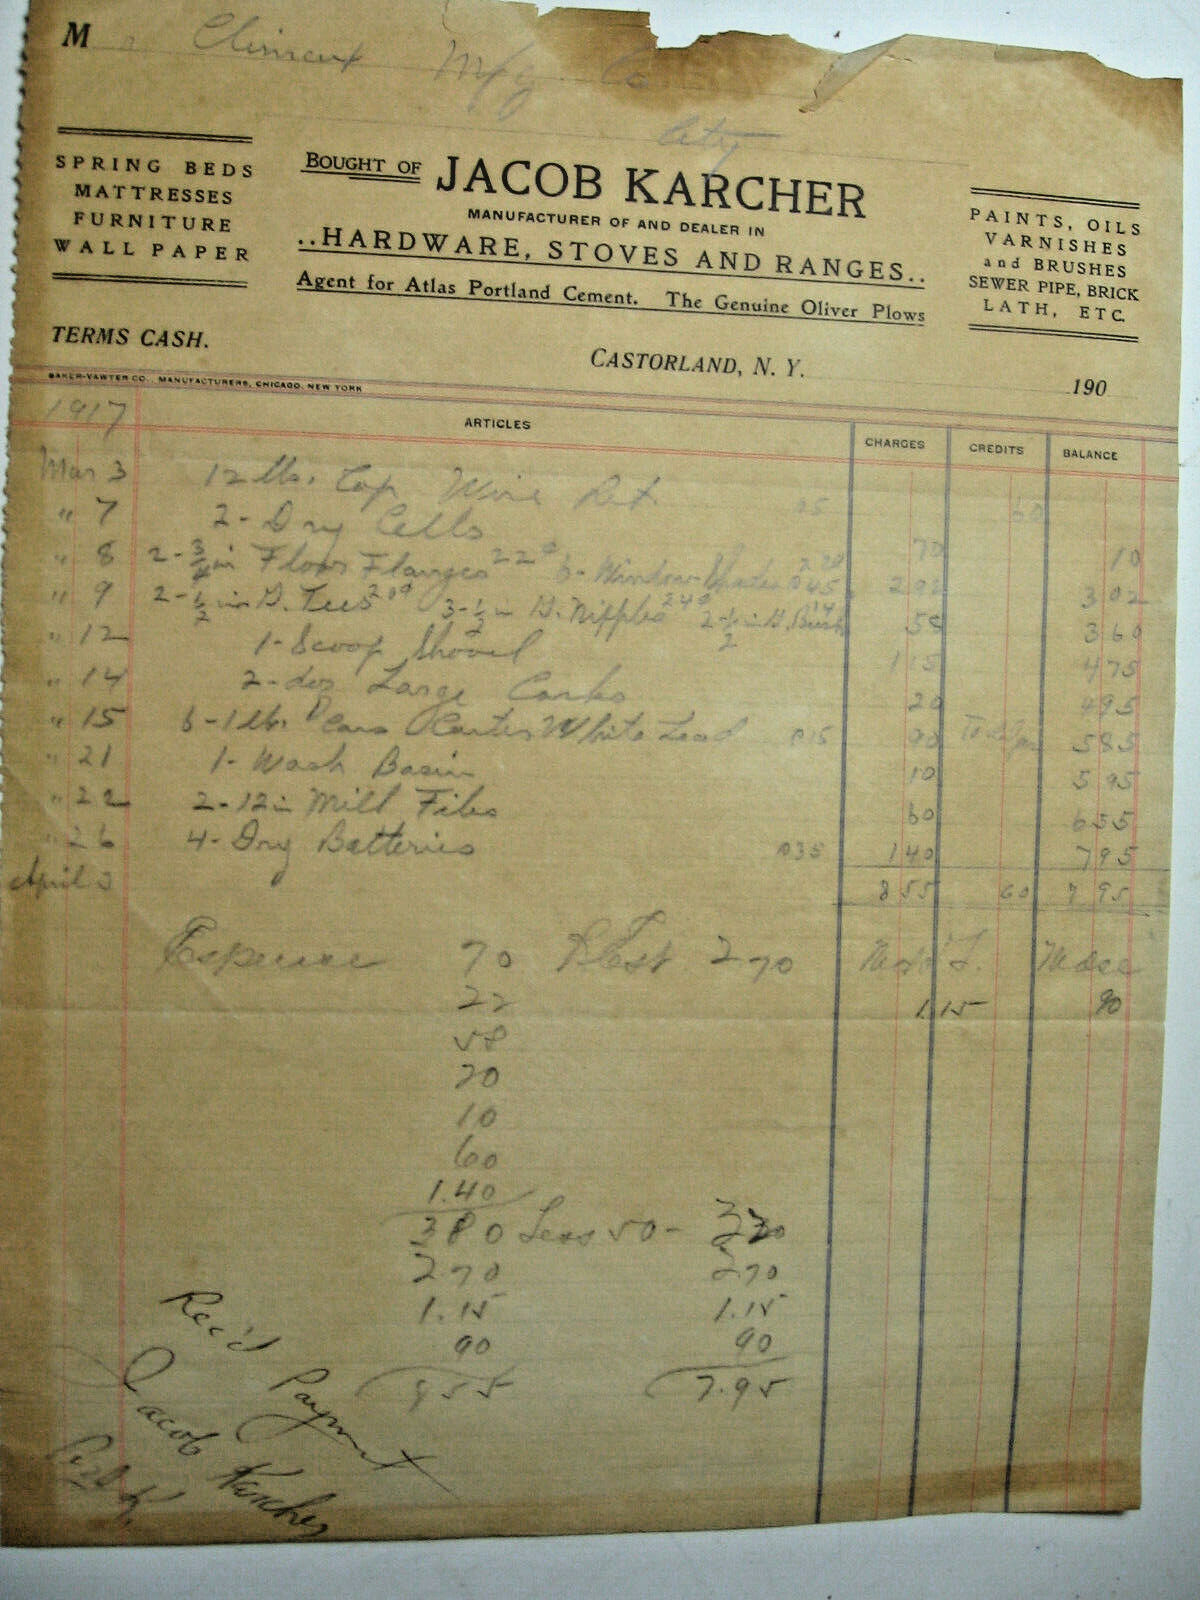 M Climent Mfg Co
City
SPRING BEDS
MATTRESSES
FURNITURE
WALL PAPER
BOUGHT OF JACOB KARCHER
MANUFACTURER OF AND DEALER IN
..HARDWARE, STOVES AND RANGES..
Agent for Atlas Portland Cement. The Genuine Oliver Plows
PAINTS, OILS
VARNISHES
and BRUSHES
SEWER PIPE, BRICK
LATH, ETC.
TERMS CASH.
CASTORLAND, N. Y. 190
BAKER-VAWTER CO., MANUFACTURERS, CHICAGO, NEW YORK
1917 ARTICLES CHARGES CREDITS BALANCE
Mar 3 12 lbs. Cop Wire Ret 05 60
" 7 2- Dry Cells 70 10
" 8 2-3/4 in Floor Flanges 22¢ 6- Window Shades 2.70 @45 292 302
" 9 2-1/2 in G. Tees 20¢ 3-1/2 in G. Nipples 24¢ 2-1/2 in G. Bush 14 58 360
" 12 1-Scoop Shovel 115 475
" 14 2-doz Large Corks 20 495
" 15 6-1 lb. Cans Carter White Lead @15 90 585
" 21 1- Wash Basin 10 595
" 22 2-12 in Mill Files 60 655
" 26 4- Dry Batteries @35 140 795
April 3 855 60 795
Expense 70 Rest 270 Mdse
22 1.15 90
58
20
10
60
1.40
380 Less 50- 330
270 270
1.15 1.15
90 90
855 7.95
Rec'd Payment
Jacob Karcher